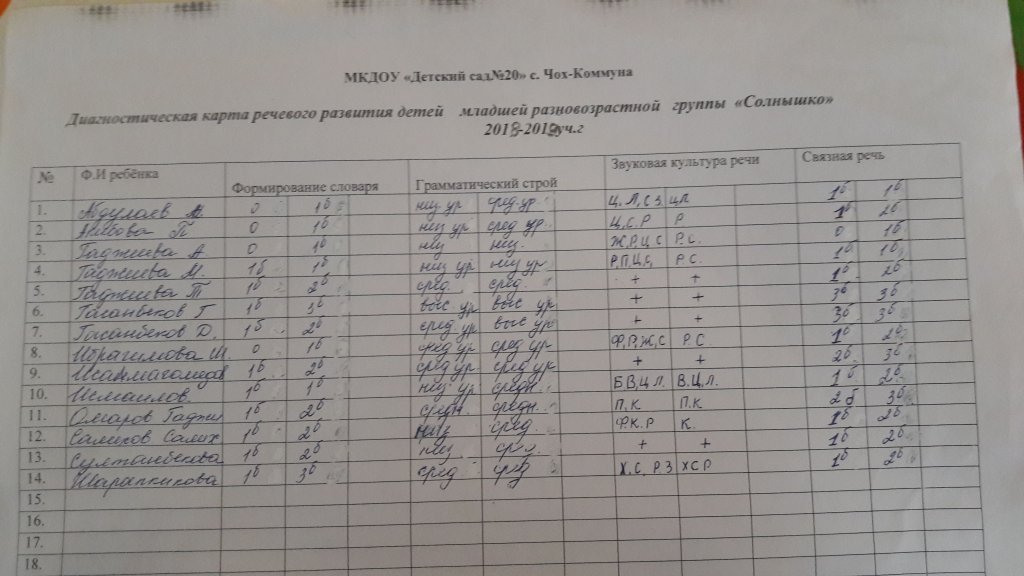 МКДОУ «Детский сад№20» с. Чох-Коммуна
Диагностическая карта речевого развития детей младшей разновозрастной группы «Солнышко»
2018-2019уч.г
№ Ф.И ребёнка Формирование словаря Грамматический строй Звуковая культура речи Связная речь
1. Абдулаев 0 1б низ ур сред ур. Ц, Л, С З, Ц Л 1б 1б
2. 0 1б низ ур сред ур. Ц, С, Р Р 1б 2б
3. Гаджиева А 0 1б низ низ. Ж, Р, Ц С Р. С. 0 1б
4. Гаджиева М. 1б 1б низ ур низ ур Р, П, Ц, С, Р. С. 1б 1б
5. Гаджиева Т 1б 2б сред. сред. + + 1б 2б
6. Гасанбеков Г 1б 3б выс ур выс ур + + 3б 3б
7. Гасанбеков Д. 1б 2б сред. ур выс ур + + 3б 3б
8. Ибрагимова Ш. 0 1б сред ур сред ур Ф, Р, Ж, С Р. С 1б 2б
9. 1б 2б сред ур сред ур + + 2б 3б
10. Исмаилов. 1б 1б низ ур средн. Б В, Ц Л. В. Ц. Л. 1б 2б
11. Омаров Гаджи 1б 2б средн. средн. П. К П. К 2б 3б
12. Салихов Салих 1б 2б низ сред. Ф. К. Р К. 1б 2б
13. Султанбекова 1б 2б низ сред. + + 1б 2б
14. 1б 3б сред. сред Х. С, Р. З Х С Р 1б 2б
15.
16.
17.
18.